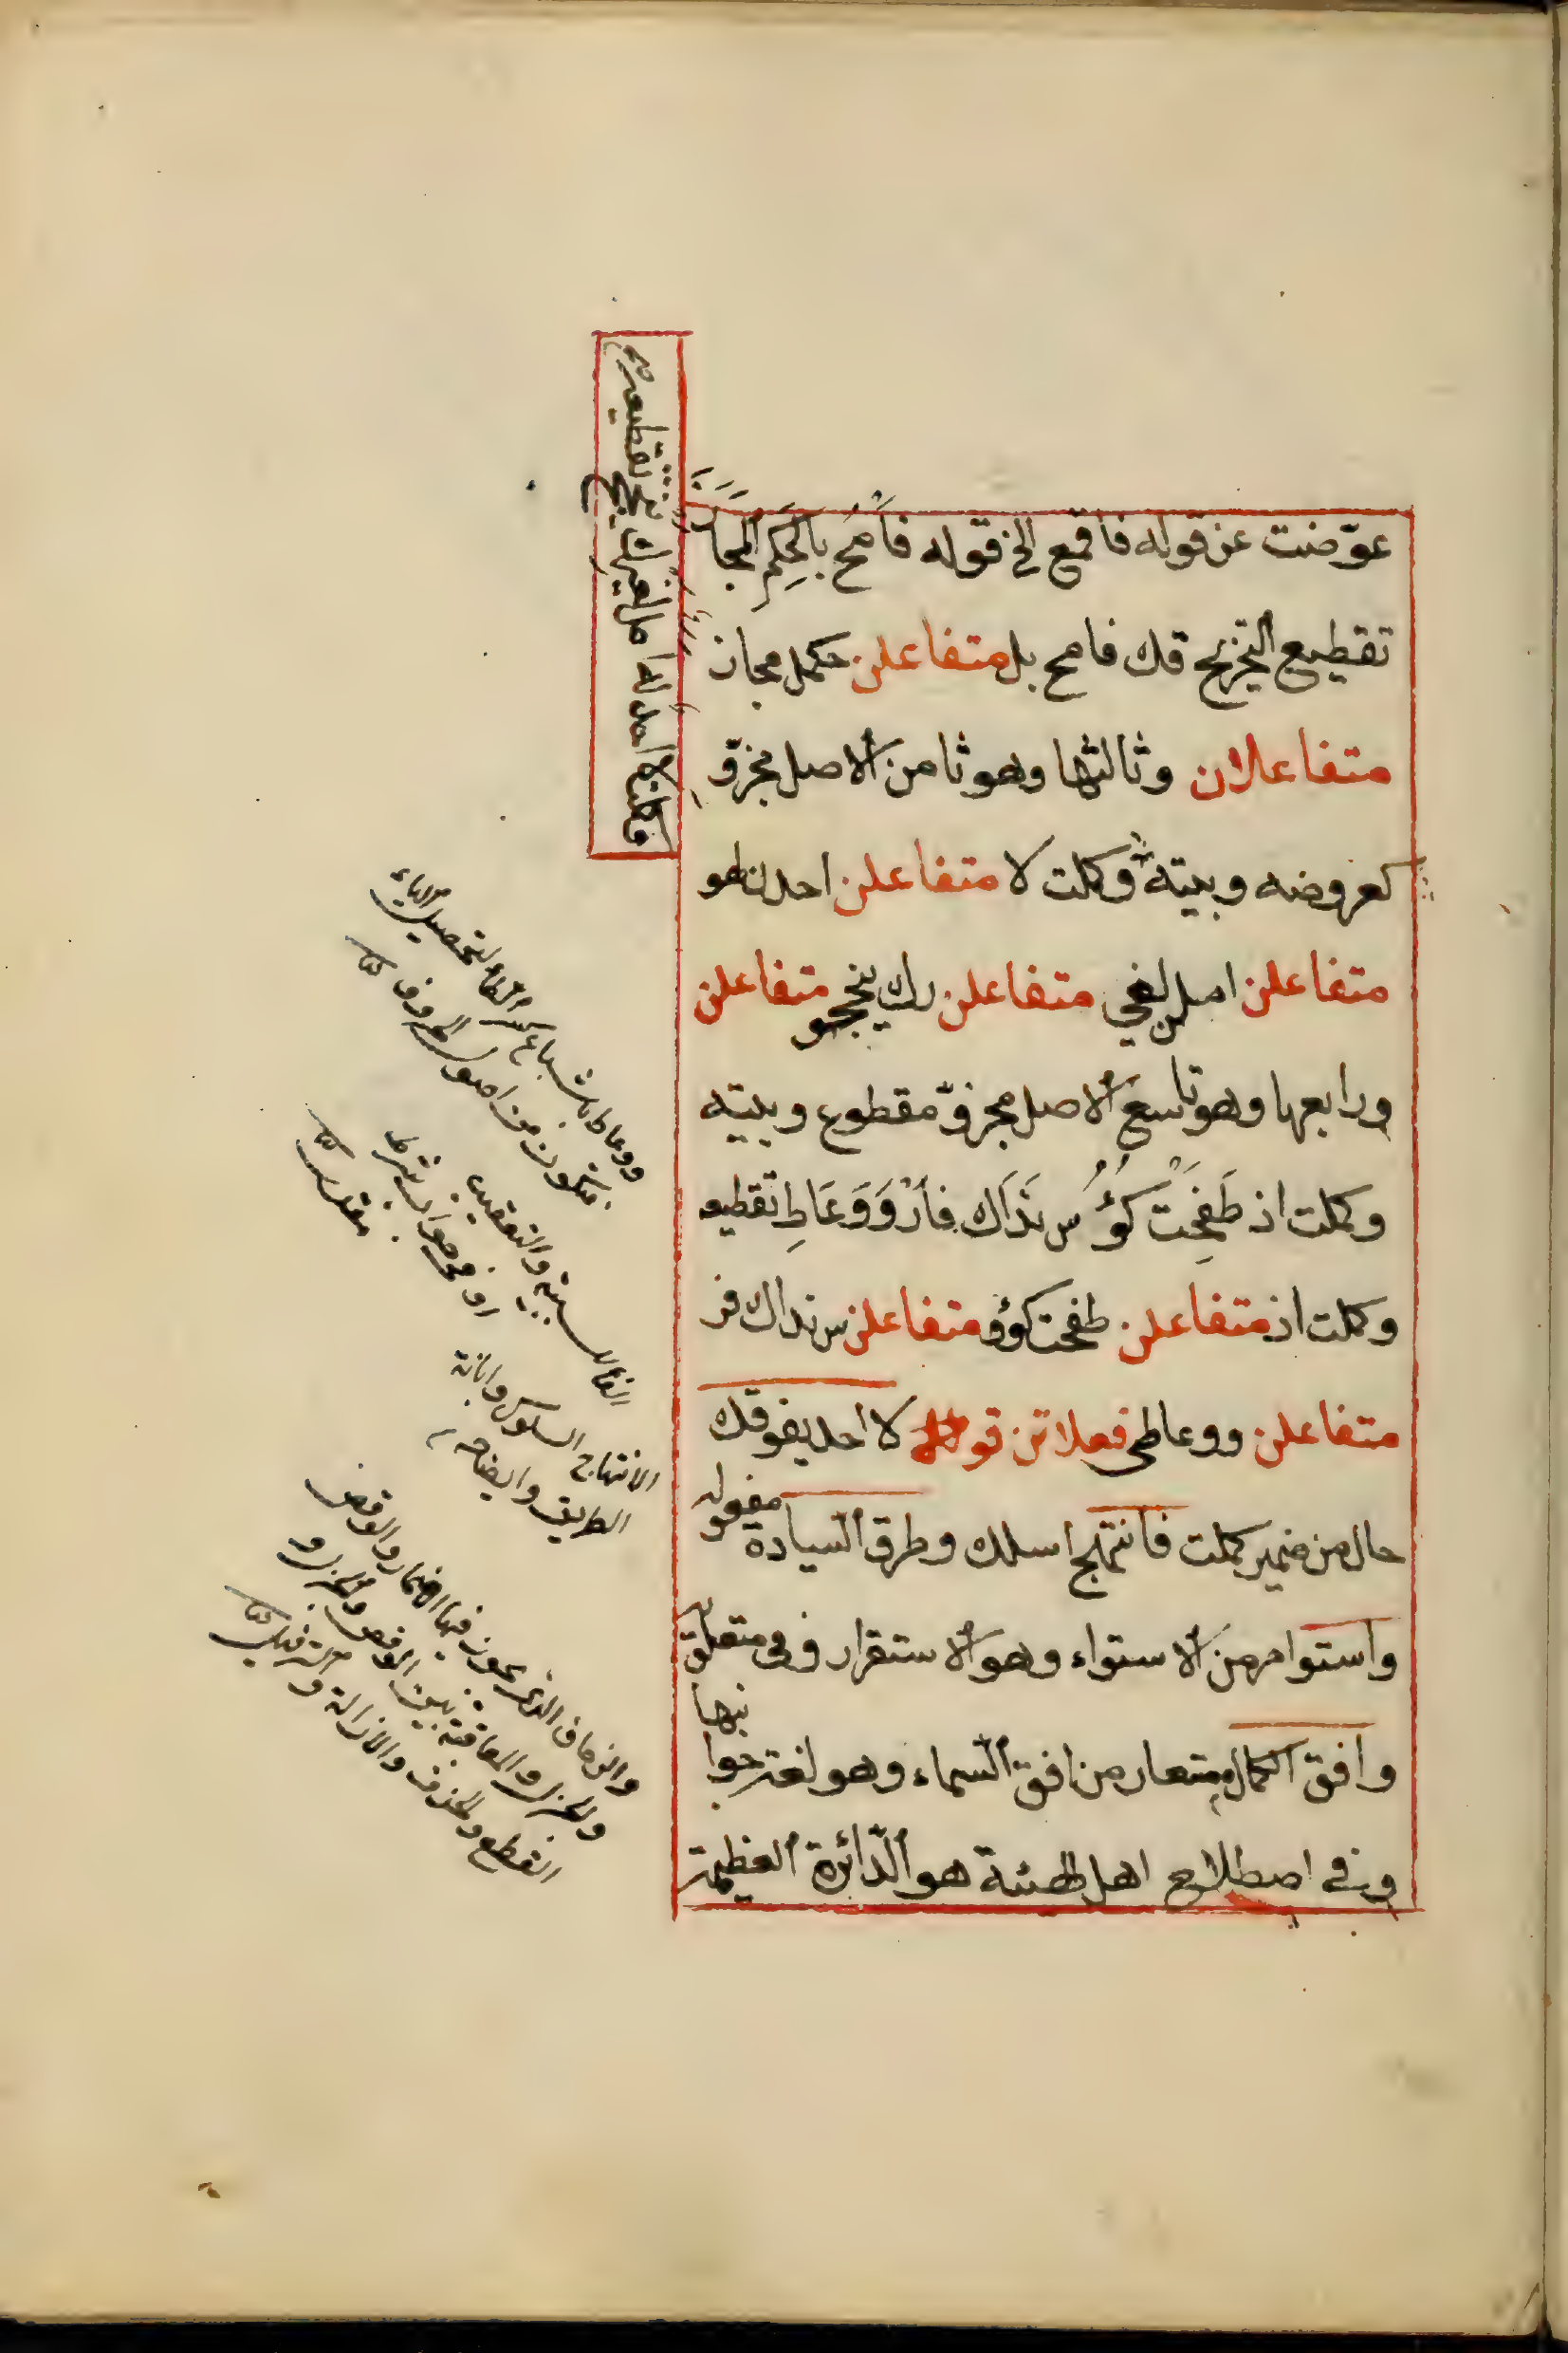 عوّضت عن قوله فاقمع الخ قوله فَامحُ بالحِكَمِ المجاز
تقطيع التخريج قك فامح بل متفاعلن حكمل مجاز
متفاعلان وثالثها وهو ثامن الاصل مجزوّ
كعروضه وبيته وكملت لا متفاعلن احدن لهو
متفاعلن املن لغي متفاعلن رك ينجحو متفاعلن
ورابعها وهو تاسع الاصل مجزوّ مقطوع وبيته
وكملت اذ طَفَحَتْ كُؤُسُ نَدَاك فَأرْوَ وَعَاطِ تقطيعه
وكملت اذ متفاعلن طفحت كؤو متفاعلن س نداك فر
متفاعلن ووعاطى فعلاتن قوله لا احد يفوقك
حال من ضمير كملت فانتهج اسلك وطرق السيادة مفعوله
واستوامر من الاستواء وهو الاستقرار وفى متعلق به
وافق الكمال مستعار من افق السماء وهو لغة جوانبها
وفي اصطلاح اهل الهيئة هو الدّائرة العظيمة
وكملت لا احد له امل لغيرك ينجح تقطيعه
ووعاط باشباع الطاء لتحصيل الياء
فتكون من اصول الحروف
الفاء للسببية والتعقيب
او في جواب شرط
مقدر
الانتهاج السلوك وابانة
الطريق وايضاحه
والزحاف الذى يجوز فيها الاضمار والوقص
والخزل والمعاقبة بين الوقص والخزل و
القطع والحذف والاذالة والترفيل